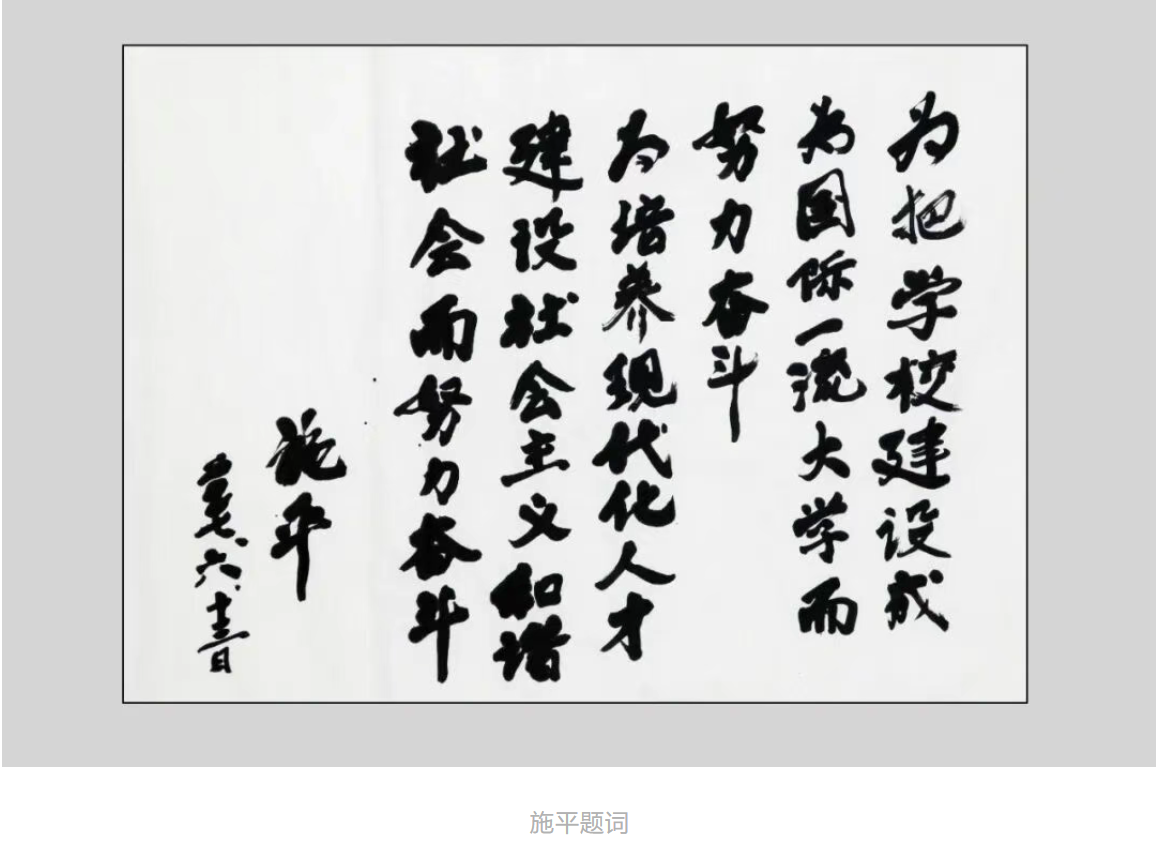 为把学校建设成
为国际一流大学而
努力奋斗
为培养现代化人才
建设社会主义和谐
社会而努力奋斗
施平
六.
施平题词